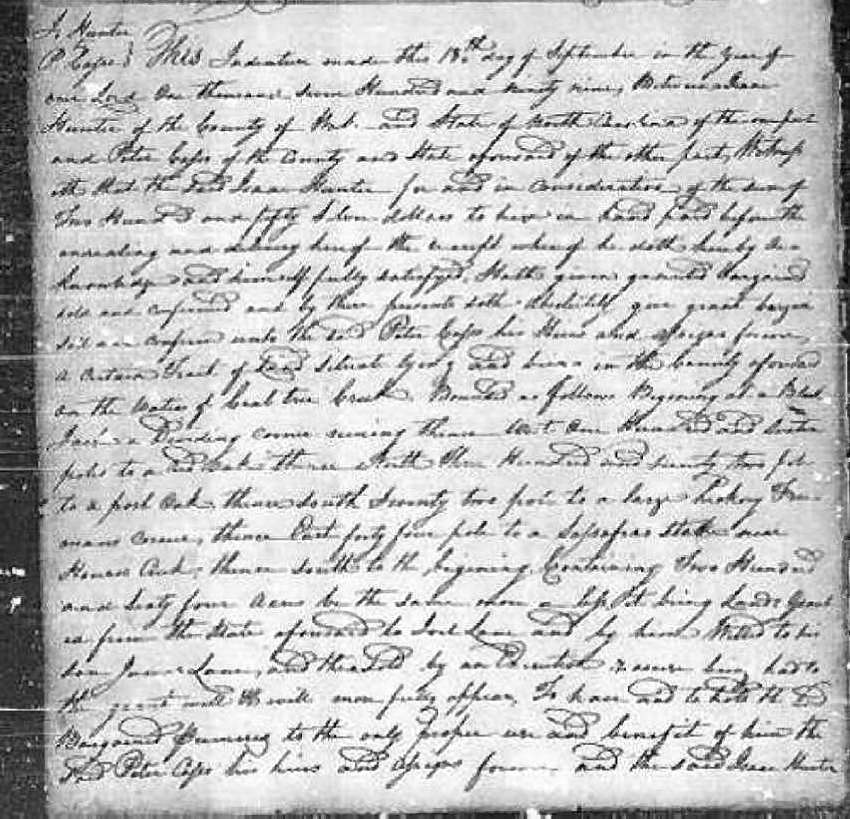 Is. Hunter
P. Capps } This Indenture made this 18th day of September in the year of
our Lord One thousand seven Hundred and ninety nine, Between Isaac
Hunter of the County of and State of North Carolina of the one part
and Peter Capps of the County and State aforesaid of the other part, Witness
eth that the said Isaac Hunter for and in consideration of the sum of
Two Hundred and fifty Silver dollars to him in hand paid before the
ensealing and delivery hereof the receipt whereof he doth hereby Ac
knowledge and himself fully satisfyed, Hath given granted Bargained
sold and confirmed and by these presents doth absolutely give grant bargain
sell and confirm unto the said Peter Capps his Heirs and assigns forever,
a Certain Tract of Land situate lying and being in the County aforesaid
on the Waters of Crabtree Creek. Bounded as follows Begining at a Black
Jack a Dividing corner runing thence West One Hundred and
poles to a red oak thence North Three Hundred and seventy two pole
to a post Oak, thence south Twenty two pole to a large Hickory Free
mans corner, thence East forty four pole to a Sassafras stake near
Creek, thence south to the begining Containing Two Hundred
and Sixty four Acres be the same more or less It being Lands Grant
ed from the State aforesaid to Joel Lane and by him Willed to his
son James Lane, and thence sold by an Execution being had to
the grant and the will more fully appear, To have and to hold the sd
Bargained Premises to the only proper use and benefit of him the
said Peter Capps his heirs and assigns forever and the said Isaac Hunter